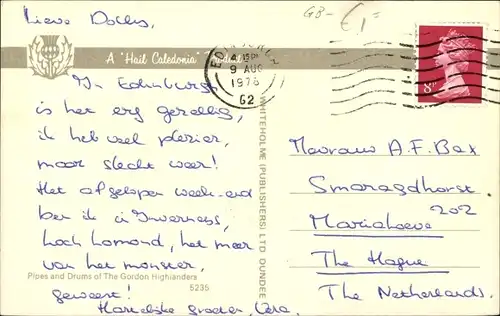 Lieve Dolly,
GB-
€1=
A "Hail Caledonia" Product
EDINBURGH
4.15PM
9 AUG
1978
G2
8P
In Edinburgh
is het erg gezellig,
ik heb veel plezier,
maar slecht weer!
Het afgelopen week-end
ben ik in Inverness,
Loch Lomond, het meer
van het monster,
geweest!
Hartelijke groeten,
Pipes and Drums of The Gordon Highlanders
5235
WHITEHOLME (PUBLISHERS) LTD DUNDEE
Mevrouw A.F. Bax
Smaragdhorst
202
Mariahoeve
The Hague
The Netherlands.